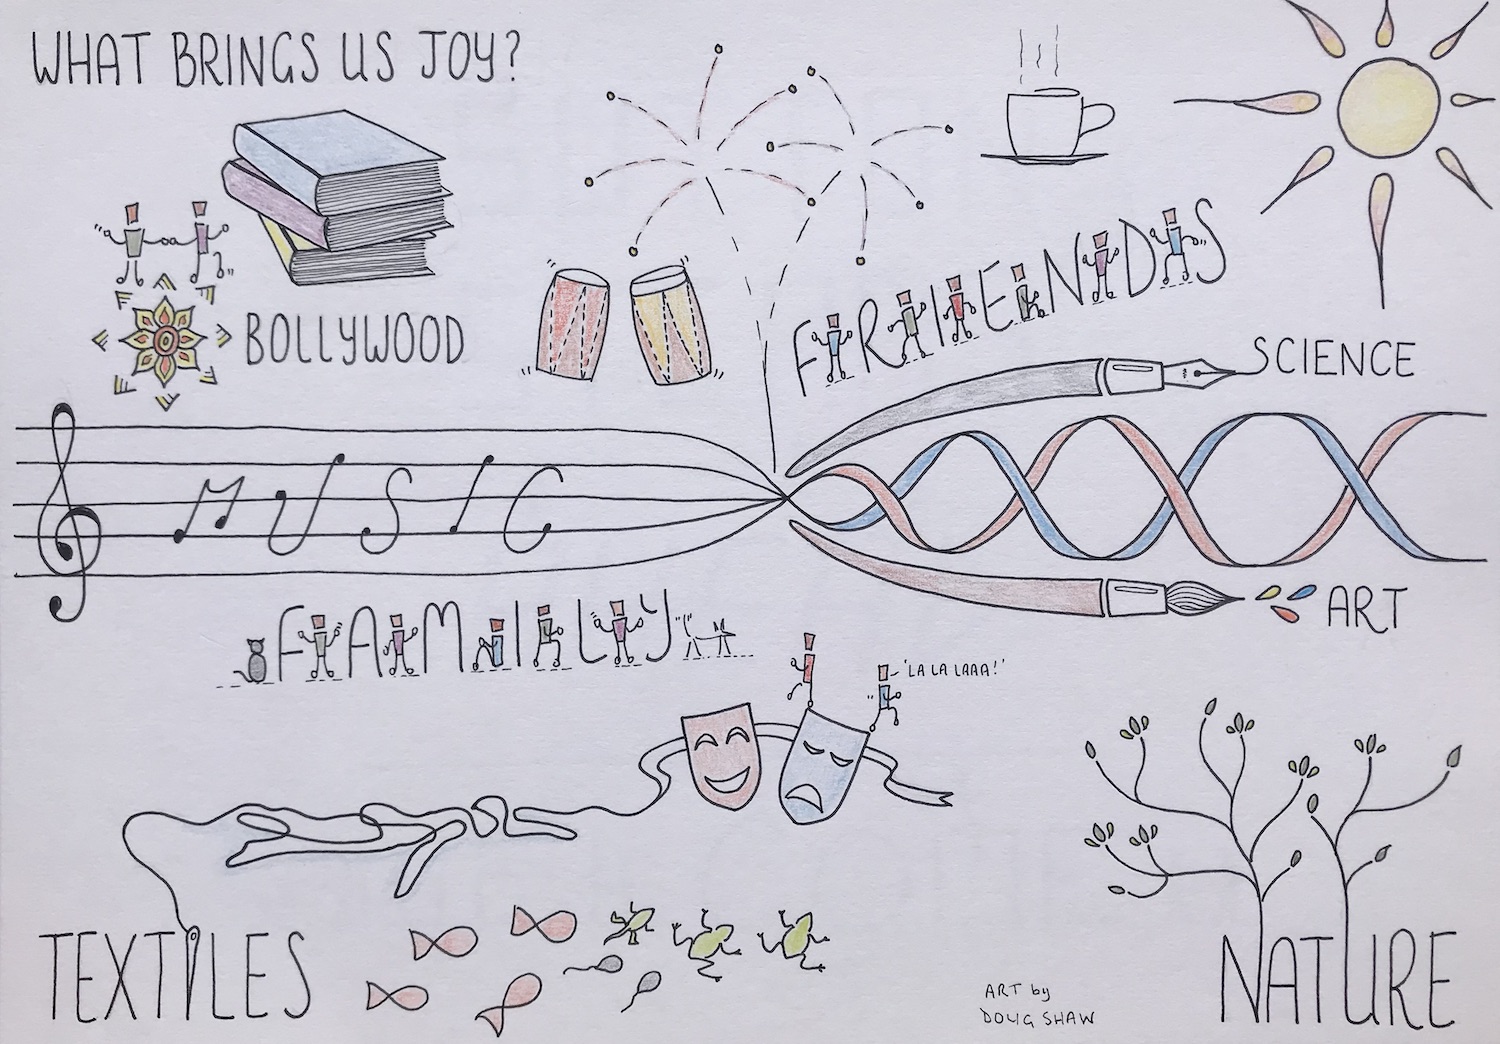 WHAT BRINGS US JOY?
FRIENDS
BOLLYWOOD
SCIENCE
MUSIC
FAMILY
ART
'LA LA LAAA!'
TEXTILES
NATURE
ART by
DOUG SHAW